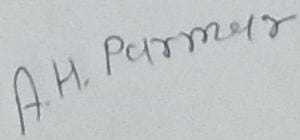 A.H. Parmar